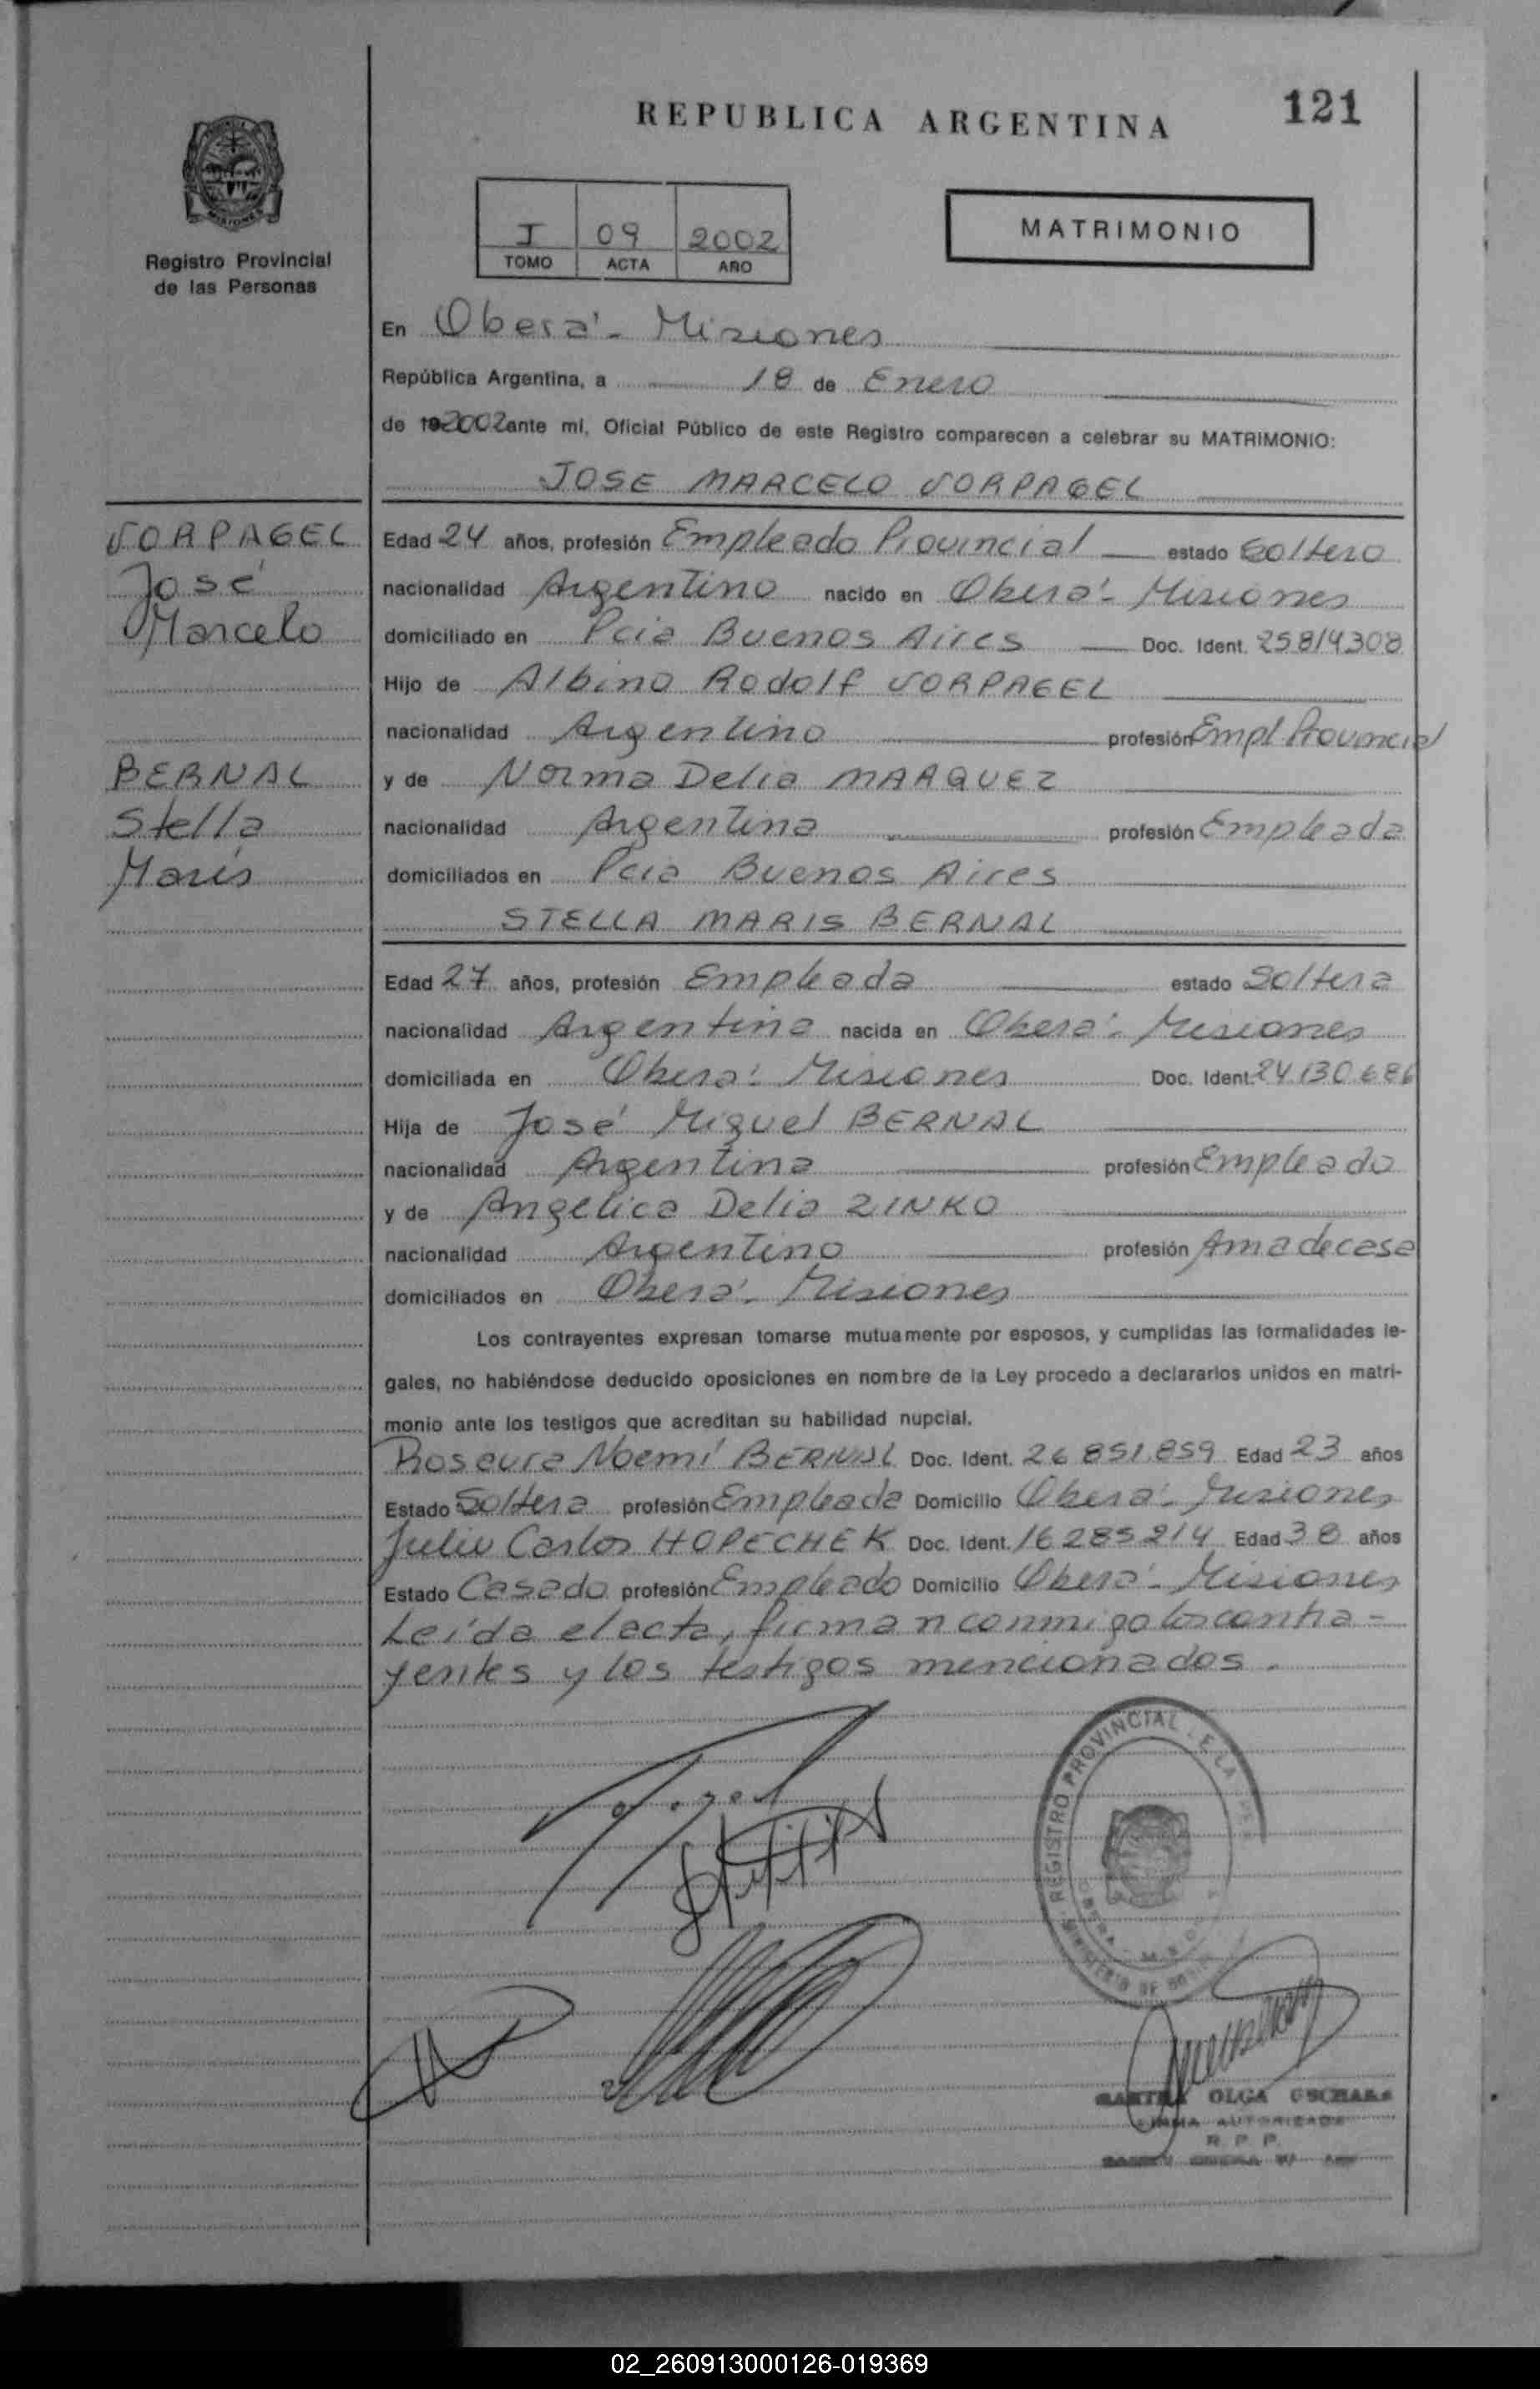 REPUBLICA ARGENTINA
121
MISIONES
Registro Provincial
de las Personas
I 09 2002
TOMO ACTA AÑO
MATRIMONIO
En Oberá - Misiones
República Argentina, a 18 de Enero
de 2002 ante mi, Oficial Público de este Registro comparecen a celebrar su MATRIMONIO:
JOSE MARCELO VORPAGEL
VORPAGEL
José
Marcelo
Edad 24 años, profesión Empleado Provincial estado Soltero
nacionalidad Argentino nacido en Oberá - Misiones
domiciliado en Pcia Buenos Aires Doc. Ident. 25814308
Hijo de Albino Rodolf VORPAGEL
nacionalidad Argentino profesión Empl Provincial
BERNAL
Stella
Maris
y de Norma Delia MARQUEZ
nacionalidad Argentina profesión Empleada
domiciliados en Pcia Buenos Aires
STELLA MARIS BERNAL
Edad 27 años, profesión Empleada estado Soltera
nacionalidad Argentina nacida en Oberá - Misiones
domiciliada en Oberá - Misiones Doc. Ident. 24130.686
Hija de José Miguel BERNAL
nacionalidad Argentina profesión Empleado
y de Angelica Delia ZINKO
nacionalidad Argentino profesión Ama de casa
domiciliados en Oberá - Misiones
Los contrayentes expresan tomarse mutuamente por esposos, y cumplidas las formalidades le-
gales, no habiéndose deducido oposiciones en nombre de la Ley procedo a declararlos unidos en matri-
monio ante los testigos que acreditan su habilidad nupcial.
Rosaura Noemí BERNAL Doc. Ident. 26 851.859 Edad 23 años
Estado Soltera profesión Empleada Domicilio Oberá - Misiones
Julio Carlos HOPECHEK Doc. Ident. 16 285 214 Edad 38 años
Estado Casado profesión Empleado Domicilio Oberá - Misiones
Leída el acta, firman conmigo los contra-
yentes y los testigos mencionados.
REGISTRO PROVINCIAL
OLGA
AUTORIZADA
R. P. P.
02_260913000126-019369